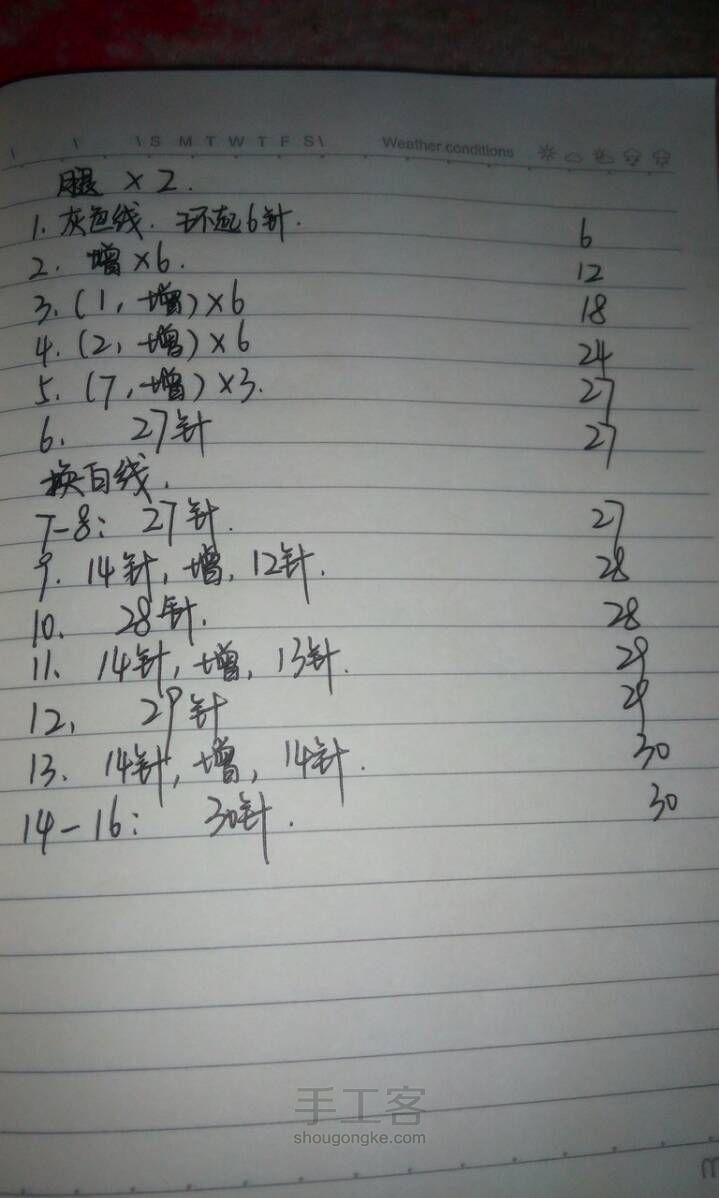 \ S M T W T F S \ Weather conditions
腿 ×2.
1. 灰色线. 环起6针. 6
2. 增×6. 12
3. (1, 增)×6 18
4. (2, 增)×6 24
5. (7, 增)×3. 27
6. 27针 27
换白线.
7-8: 27针. 27
9. 14针, 增, 12针. 28
10. 28针. 28
11. 14针, 增, 13针. 29
12. 29针 29
13. 14针, 增, 14针. 30
14-16: 30针. 30
手工客
shougongke.com